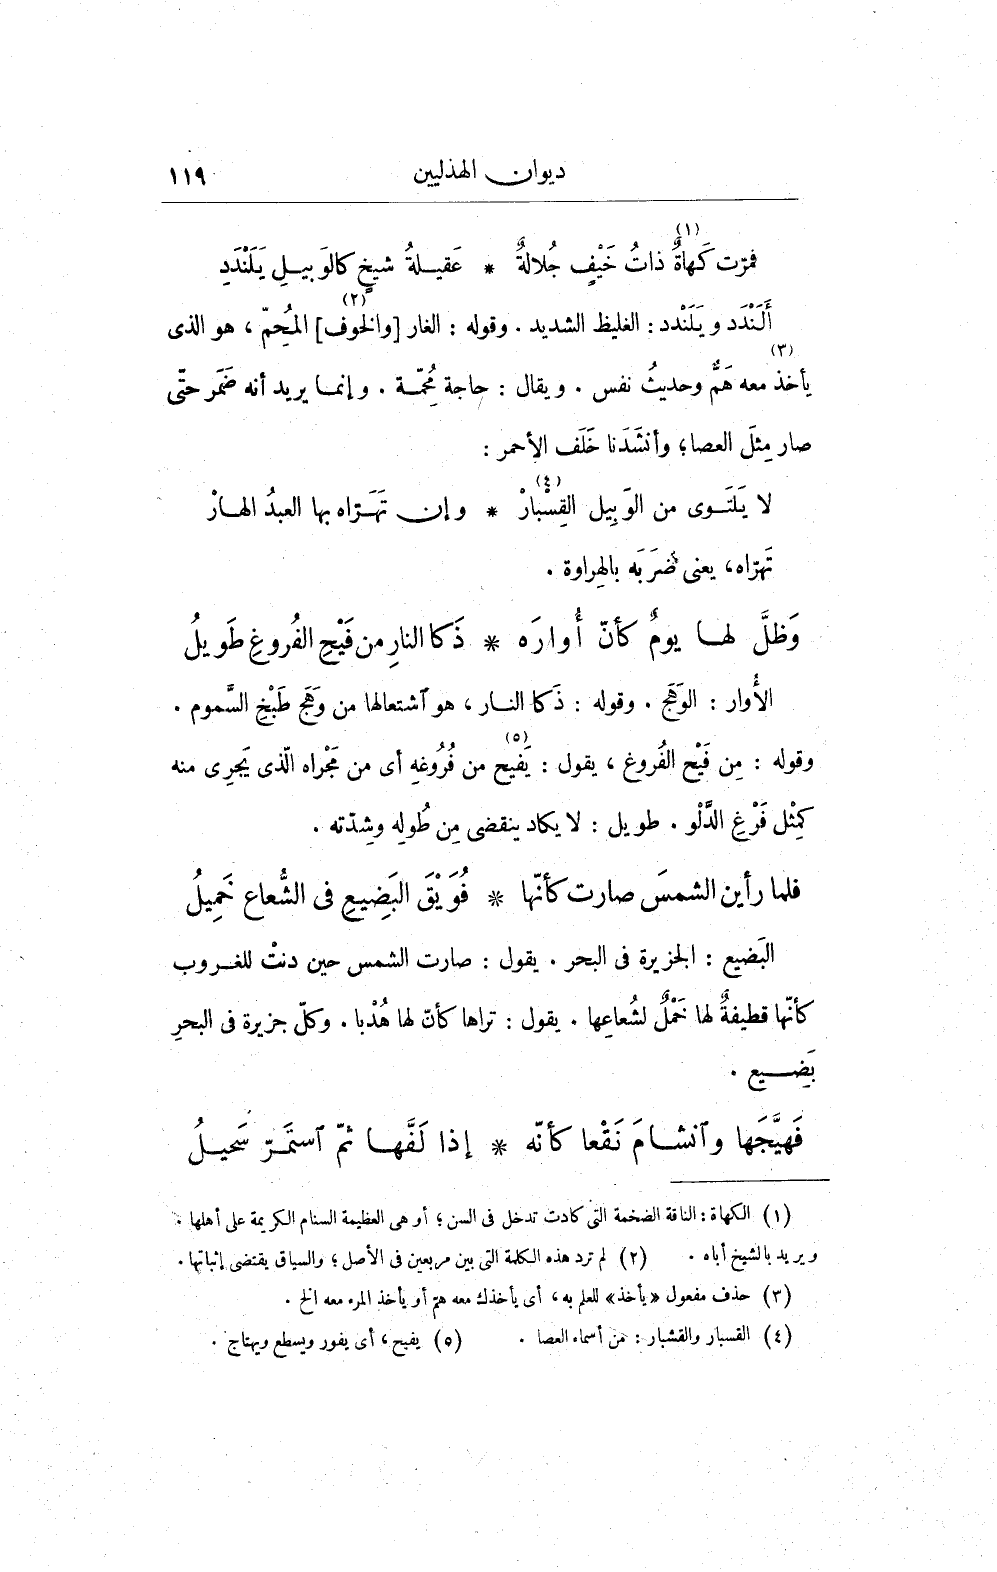 ديوان الهذليين ١١٩
فمرّت كَهاةٌ (١) ذاتُ خَيْفٍ جُلالةٌ * عَقيلةُ شيخٍ كالوَبيلِ يَلَنْدَدِ
أَلَنْدَد ويَلَنْدد : الغليظ الشديد . وقوله : الغار [والخوف] (٢) المُحِمّ ، هو الذى
يأخذ (٣) معه هَمٌّ وحديثُ نفس . ويقال : حاجة مُحِمّة . وإنما يريد أنه ضَمَر حتّى
صار مِثلَ العصا؛ وأنشَدَنا خَلَف الأحمر :
لا يَلتَوى من الوَبِيل القِسْبارْ (٤) * وإن تَهَرّاه بها العبدُ الهارْ
تَهرّاه، يعنى ضَرَبَه بالهِراوة .
وَظلَّ لها يومٌ كأنّ أُوارَه * ذَكا النارِ من فَيْحِ الفُروغِ طَويلُ
الأُوار : الوَهَج . وقوله : ذَكا النار ، هو ٱشتعالها من وَهَج طَبْخِ السَّموم .
وقوله : مِن فَيْح الفُروغ ، يقول : يَفيح (٥) من فُرُوغهِ أى من مَجْراه الّذى يَجرِى منه
كمِثْل فَرْغِ الدَّلْو . طويل : لا يكاد ينقضى مِن طُولِه وشِدّته .
فلما رأين الشمسَ صارت كأنّها * فُوَيْقَ البَضِيعِ فى الشُّعاع خَمِيلُ
البَضيع : الجزيرة فى البحر . يقول : صارت الشمس حين دنتْ للغروب
كأنّها قطيفةٌ لها خَمْلٌ لشُعاعِها . يقول : تراها كأنّ لها هُدْبا . وكلّ جزيرة فى البحرِ
بَضِيع .
فَهيَّجَها وٱنشامَ نَقْعا كأنّه * إذا لَفَّها ثمّ ٱستَمَرّ سَحيلُ
(١) الكهاة : الناقة الضخمة التى كادت تدخل فى السن ؛ أو هى العظيمة السنام الكريمة على أهلها .
ويريد بالشيخ أباه . (٢) لم ترد هذه الكلمة التى بين مربعين فى الأصل ؛ والسياق يقتضى إثباتها .
(٣) حذف مفعول «يأخذ» للعلم به، أى يأخذك معه هم أو يأخذ المرء معه الخ .
(٤) القسبار والقشبار : من أسماء العصا . (٥) يفيح، أى يفور ويسطع ويهتاج .